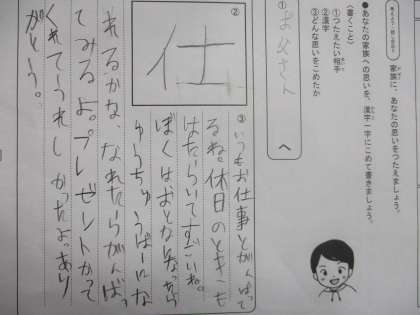 考えよう・話し合おう
家族に、あなたの思いをつたえましょう。
●あなたの家族への思いを、漢字一字にこめて書きましょう。
〈書くこと〉
①つたえたい相手
②漢字
③どんな思いをこめたか
①お父さん
へ
②
仕
③いつもお仕事とがんばって
るね。休日のときも
はたらいてすごいね。
ぼくはおとなになったら
ゆうちゅうばーにな
れるかな、なれたらがんばっ
てみるよ。プレゼントかって
くれてうれしかったよ。あり
がとう。